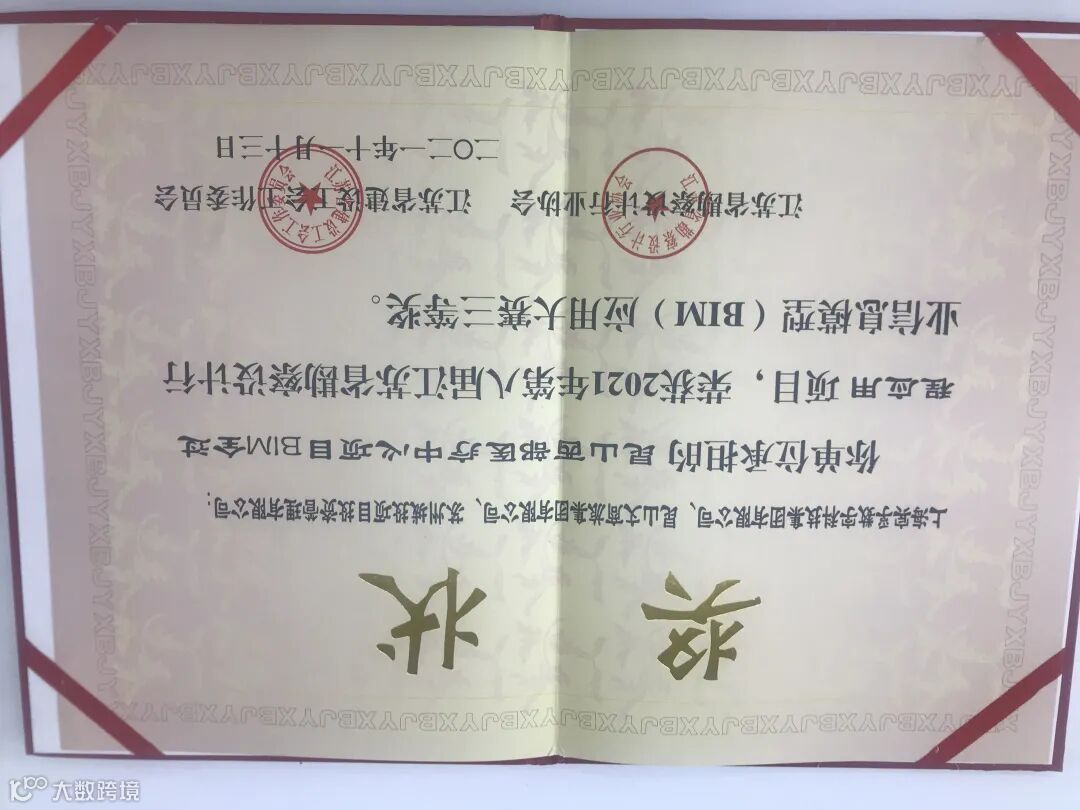 奖状
上海宾孚数字科技集团有限公司、昆山文商旅集团有限公司、苏州城投项目投资管理有限公司：
你单位承担的 昆山西部医疗中心项目BIM全过
程应用 项目，荣获2021年第八届江苏省勘察设计行
业信息模型（BIM）应用大赛三等奖。
江苏省勘察设计行业协会 江苏省建设工会工作委员会
二〇二一年十一月十三日
大数跨境